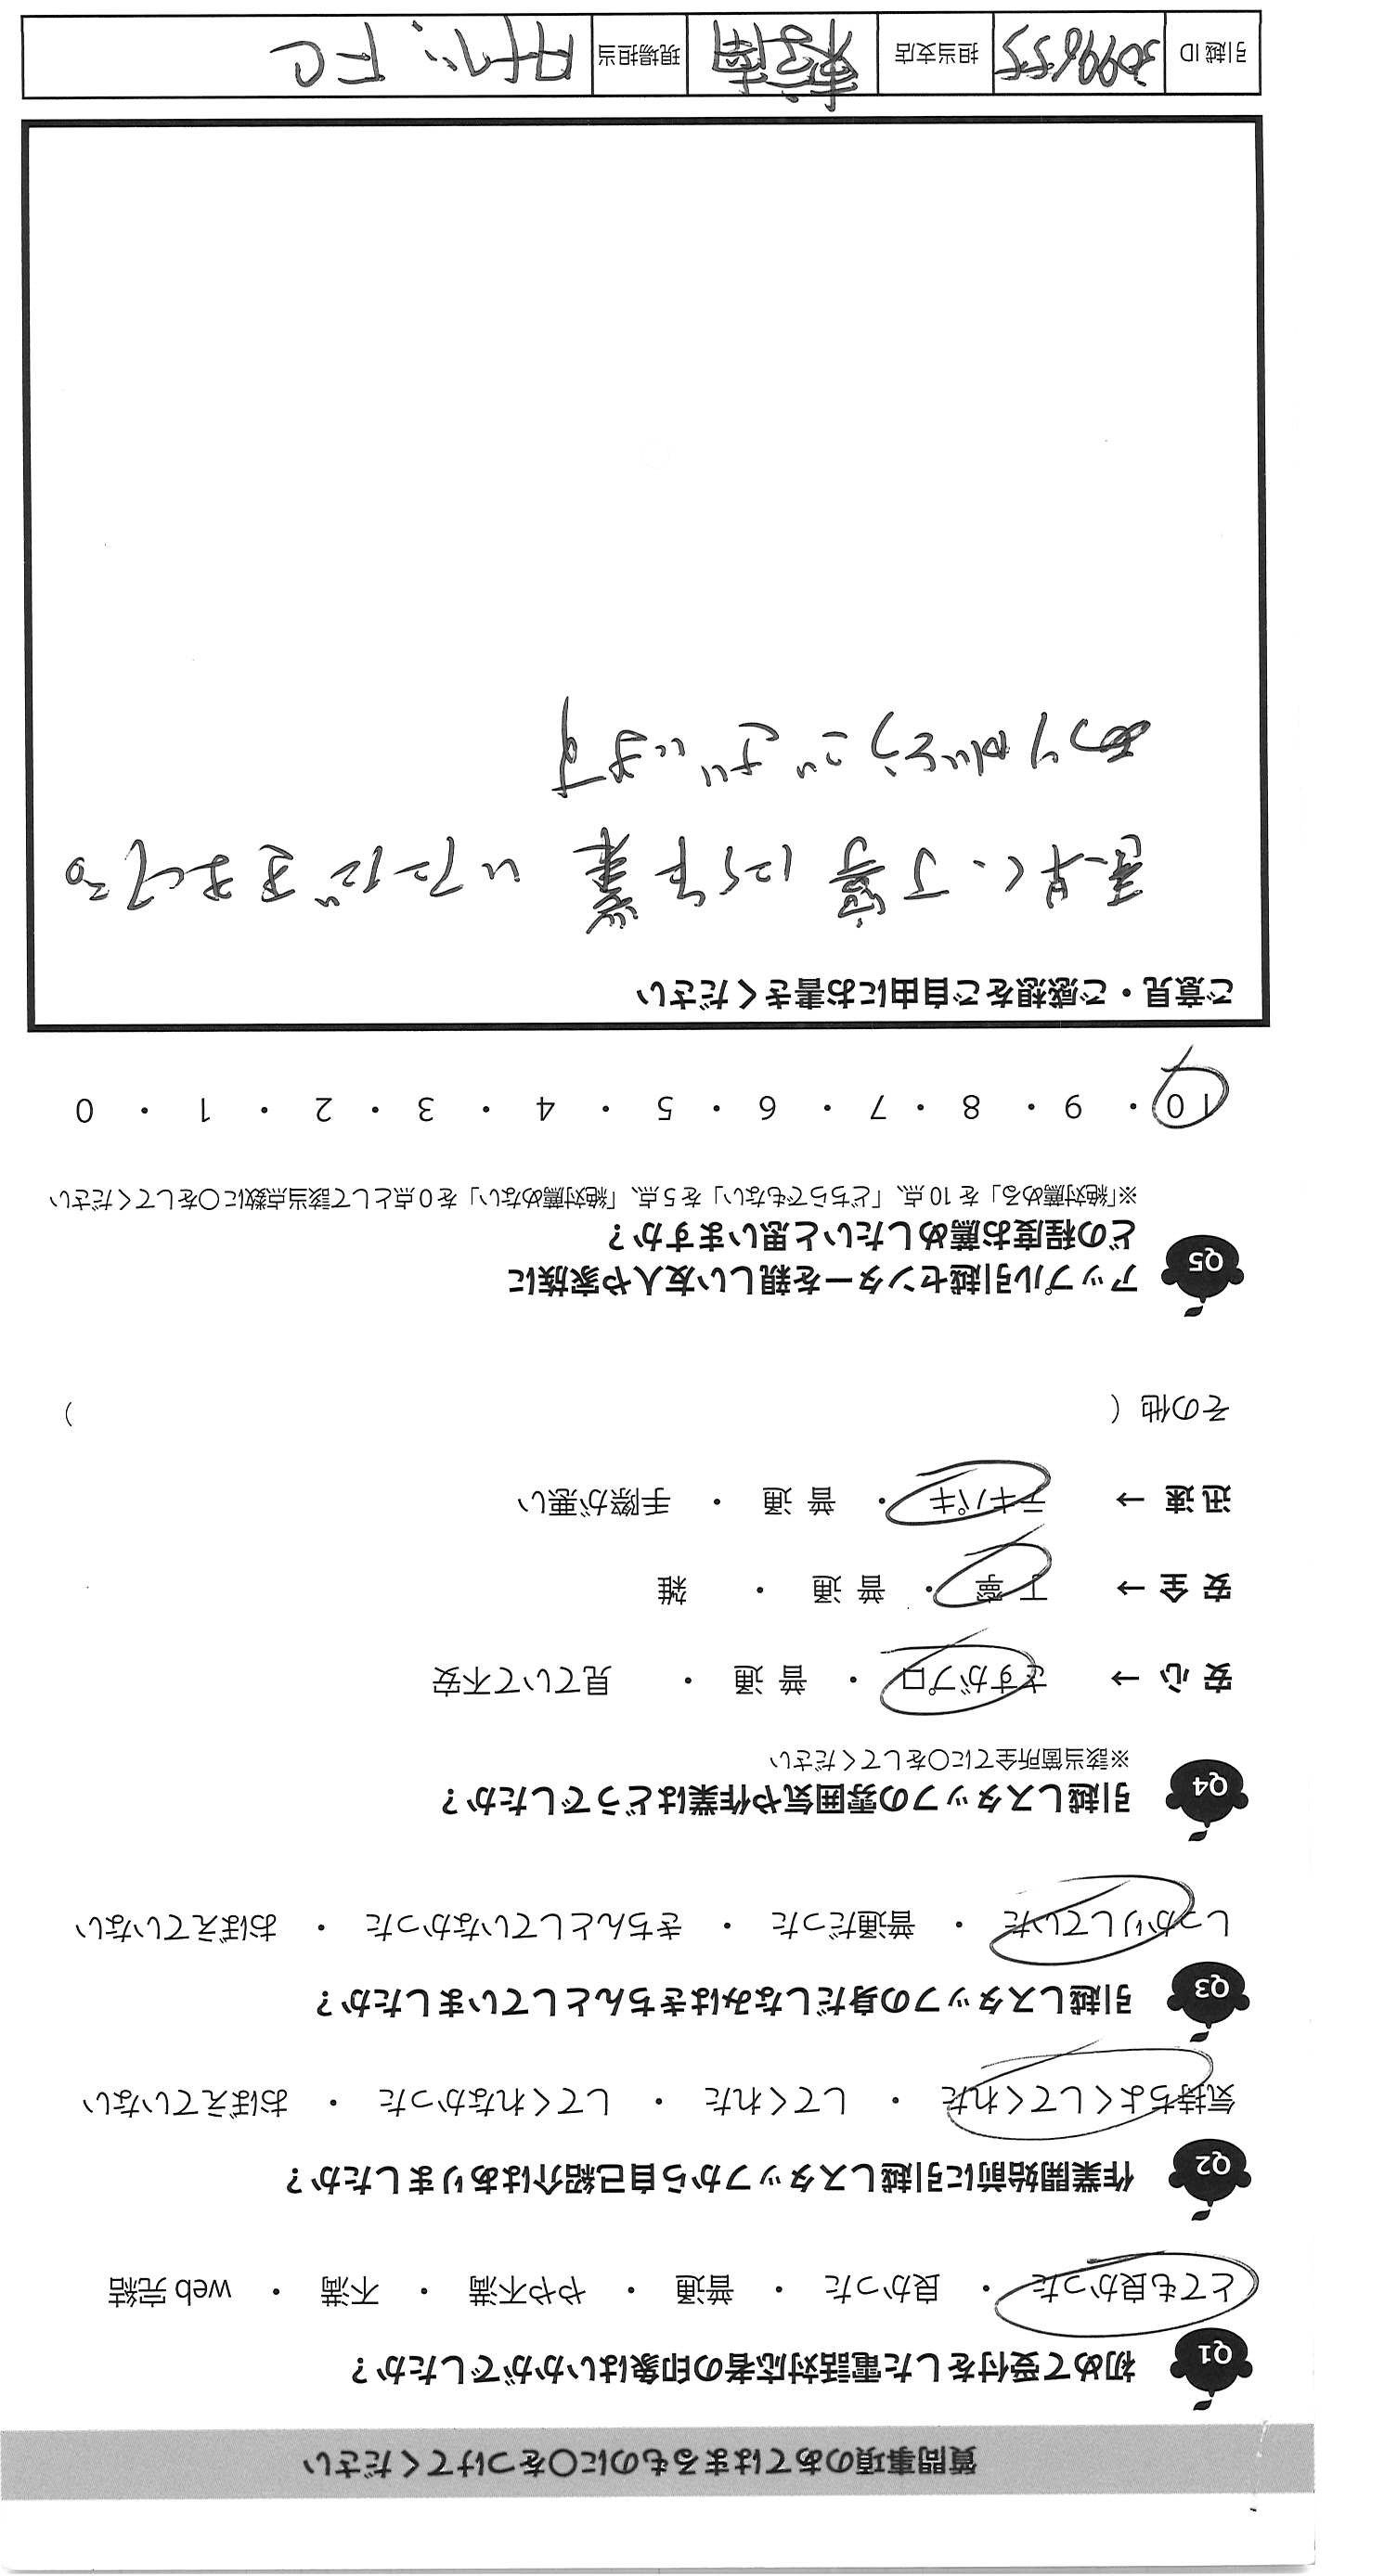 質問事項のあてはまるものに〇をつけてください
Q1 初めて受付をした電話対応者の印象はいかがでしたか？
とても良かった ・ 良かった ・ 普通 ・ やや不満 ・ 不満 ・ web 完結
Q2 作業開始前に引越しスタッフから自己紹介はありましたか？
気持ちよくしてくれた ・ してくれた ・ してくれなかった ・ おぼえていない
Q3 引越しスタッフの身だしなみはきちんとしていましたか？
しっかりしていた ・ 普通だった ・ きちんとしていなかった ・ おぼえていない
Q4 引越しスタッフの雰囲気や作業はどうでしたか？
※該当箇所全てに〇をしてください
安 心 → さすがプロ ・ 普 通 ・ 見ていて不安
安 全 → 丁 寧 ・ 普 通 ・ 雑
迅 速 → テキパキ ・ 普 通 ・ 手際が悪い
その他（ ）
Q5 アップル引越センターを親しい友人や家族に
どの程度お薦めしたいと思いますか？
※「絶対薦める」を 10 点、「どちらでもない」を 5 点、「絶対薦めない」を 0 点として該当点数に〇をしてください
10 ・ 9 ・ 8 ・ 7 ・ 6 ・ 5 ・ 4 ・ 3 ・ 2 ・ 1 ・ 0
ご意見・ご感想をご自由にお書きください
素早く、丁寧に作業いただきました。
ありがとうございます
引越 ID 担当支店 現場担当